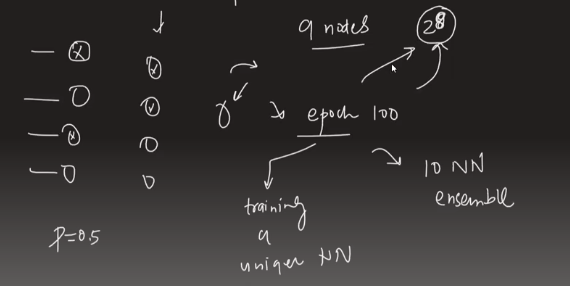 9 nodes
2^8
epoch 100
10 NN
ensemble
training
a
unique NN
P=0.5